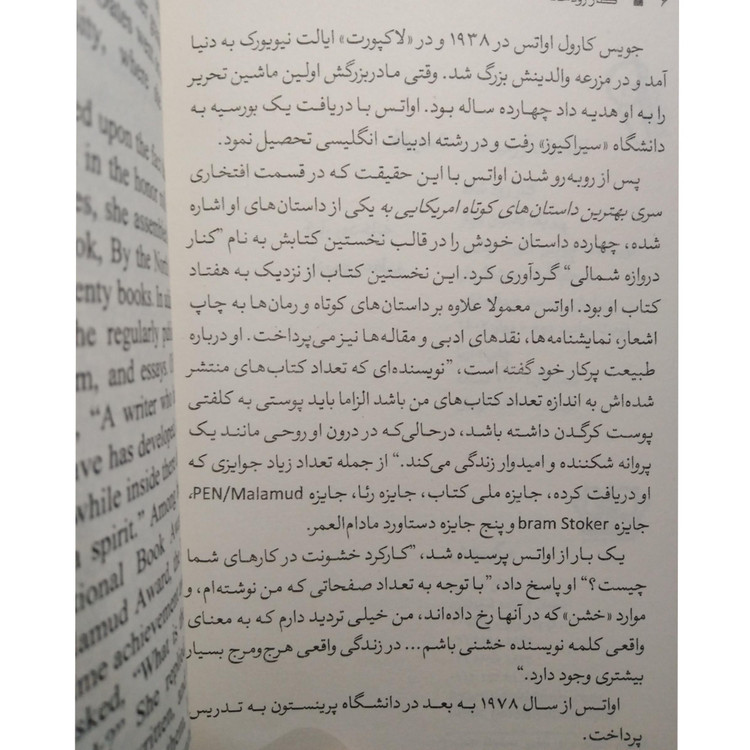 ۶
جویس کارول اواتس در ۱۹۳۸ و در «لاکپورت» ایالت نیویورک به دنیا
آمد و در مزرعه والدینش بزرگ شد. وقتی مادربزرگش اولین ماشین تحریر
را به او هدیه داد چهارده ساله بود. اواتس با دریافت یک بورسیه به
دانشگاه «سیراکیوز» رفت و در رشته ادبیات انگلیسی تحصیل نمود.
پس از روبه‌رو شدن اواتس با این حقیقت که در قسمت افتخاری
سری بهترین داستان‌های کوتاه امریکایی به یکی از داستان‌های او اشاره
شده، چهارده داستان خودش را در قالب نخستین کتابش به نام "کنار
دروازه شمالی" گردآوری کرد. این نخستین کتاب از نزدیک به هفتاد
کتاب او بود. اواتس معمولا علاوه بر داستان‌های کوتاه و رمان‌ها به چاپ
اشعار، نمایشنامه‌ها، نقدهای ادبی و مقاله‌ها نیز می‌پرداخت. او درباره
طبیعت پرکار خود گفته است، "نویسنده‌ای که تعداد کتاب‌های منتشر
شده‌اش به اندازه تعداد کتاب‌های من باشد الزاما باید پوستی به کلفتی
پوست کرگدن داشته باشد، درحالی‌که در درون او روحی مانند یک
پروانه شکننده و امیدوار زندگی می‌کند." از جمله تعداد زیاد جوایزی که
او دریافت کرده، جایزه ملی کتاب، جایزه رئا، جایزه PEN/Malamud،
جایزه bram Stoker و پنج جایزه دستاورد مادام‌العمر.
یک بار از اواتس پرسیده شد، "کارکرد خشونت در کارهای شما
چیست؟" او پاسخ داد، "با توجه به تعداد صفحاتی که من نوشته‌ام، و
موارد «خشن» که در آنها رخ داده‌اند، من خیلی تردید دارم که به معنای
واقعی کلمه نویسنده خشنی باشم... در زندگی واقعی هرج‌ومرج بسیار
بیشتری وجود دارد."
اواتس از سال ۱۹۷۸ به بعد در دانشگاه پرینستون به تدریس
پرداخت.
upon the
in the honor
she
By the
books. In
he regularly
and essays.
"A writer who
has developed
while inside
spirit." Among
Book
Award,
achievement
"What is
She